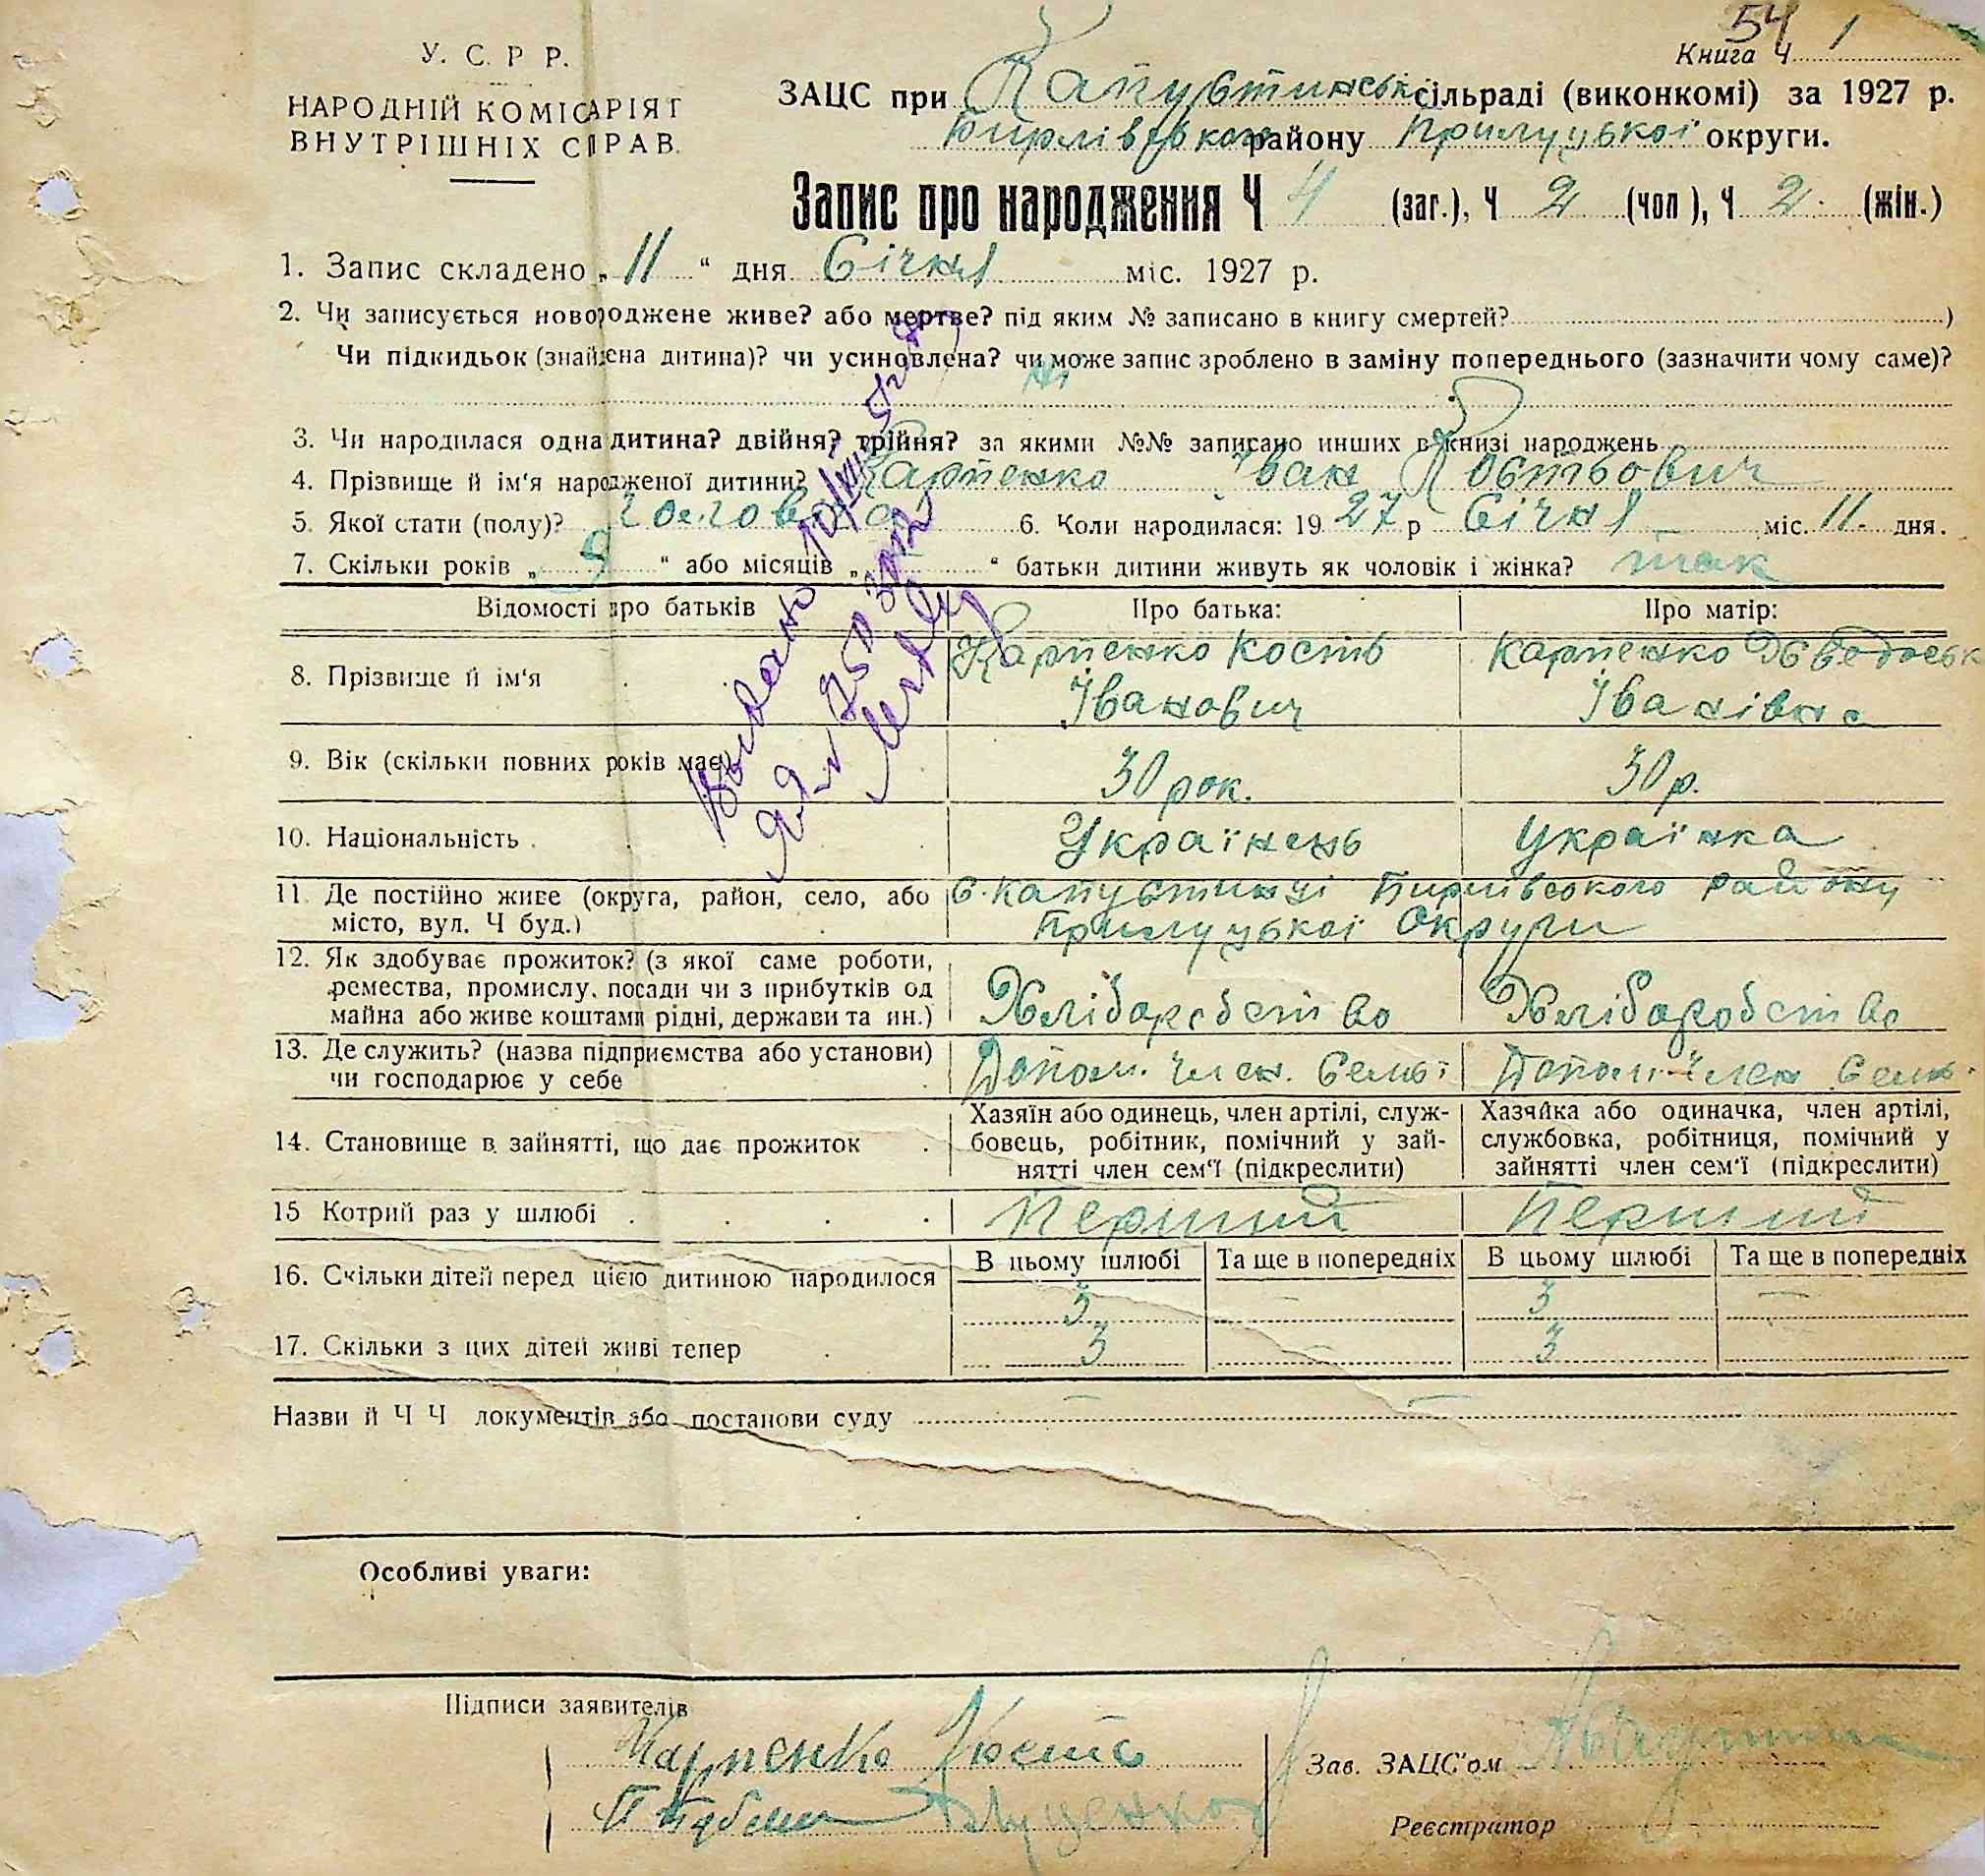 54 1
У. С. Р Р.
Книга Ч
НАРОДНІЙ КОМІСАРІЯТ
ВНУТРІШНІХ СПРАВ.
ЗАЦС при Капустинській сільраді (виконкомі) за 1927 р.
району Прилуцької округи.
Запис про народження Ч 4 (заг.), Ч 2 (чол), Ч 2. (жін.)
1. Запис складено „ 11 “ дня Січня міс. 1927 р.
2. Чи записується новороджене живе? або мертве? під яким № записано в книгу смертей? )
Чи підкидьок (знайдена дитина)? чи усиновлена? чи може запис зроблено в заміну попереднього (зазначити чому саме)?
ні
3. Чи народилася одна дитина? двійня? трійня? за якими №№ записано инших в книзі народжень
4. Прізвище й ім'я народженої дитини? Карпенко Іван Костьович
5. Якої стати (полу)? Чоловіча 6. Коли народилася: 1927 р Січня міс. 11. дня.
7. Скільки років „ 9 “ або місяців „ “ батьки дитини живуть як чоловік і жінка? так
Відомості про батьків Про батька: Про матір:
8. Прізвище й ім'я Карпенко Кость Карпенко
Іванович Іванівна
9. Вік (скільки повних років має) 30 рок. 30 р.
10. Національність Українець Українка
11. Де постійно живе (округа, район, село, або с. Капустинці району
місто, вул. Ч буд.) Прилуцької Округи
12. Як здобуває прожиток? (з якої саме роботи,
ремества, промислу, посади чи з прибутків од
майна або живе коштами рідні, держави та ин.) Хліборобство Хліборобство
13. Де служить? (назва підприємства або установи)
чи господарює у себе Допом. член. Семьї Допом. Член Семь.
14. Становище в зайнятті, що дає прожиток
Хазяїн або одинець, член артілі, служ-
бовець, робітник, помічний у зай-
нятті член сем'ї (підкреслити)
Хазяйка або одиначка, член артілі,
службовка, робітниця, помічний у
зайнятті член сем'ї (підкреслити)
15 Котрий раз у шлюбі Перший Перший
В цьому шлюбі Та ще в попередніх В цьому шлюбі Та ще в попередніх
16. Скільки дітей перед цією дитиною народилося 3 — 3 —
17. Скільки з цих дітей живі тепер 3 — 3
Назви й Ч Ч документів або постанови суду — —
Особливі уваги:
Підписи заявителів
Карпенко Кость
Зав. ЗАЦС'ом
Луценко
Реєстратор